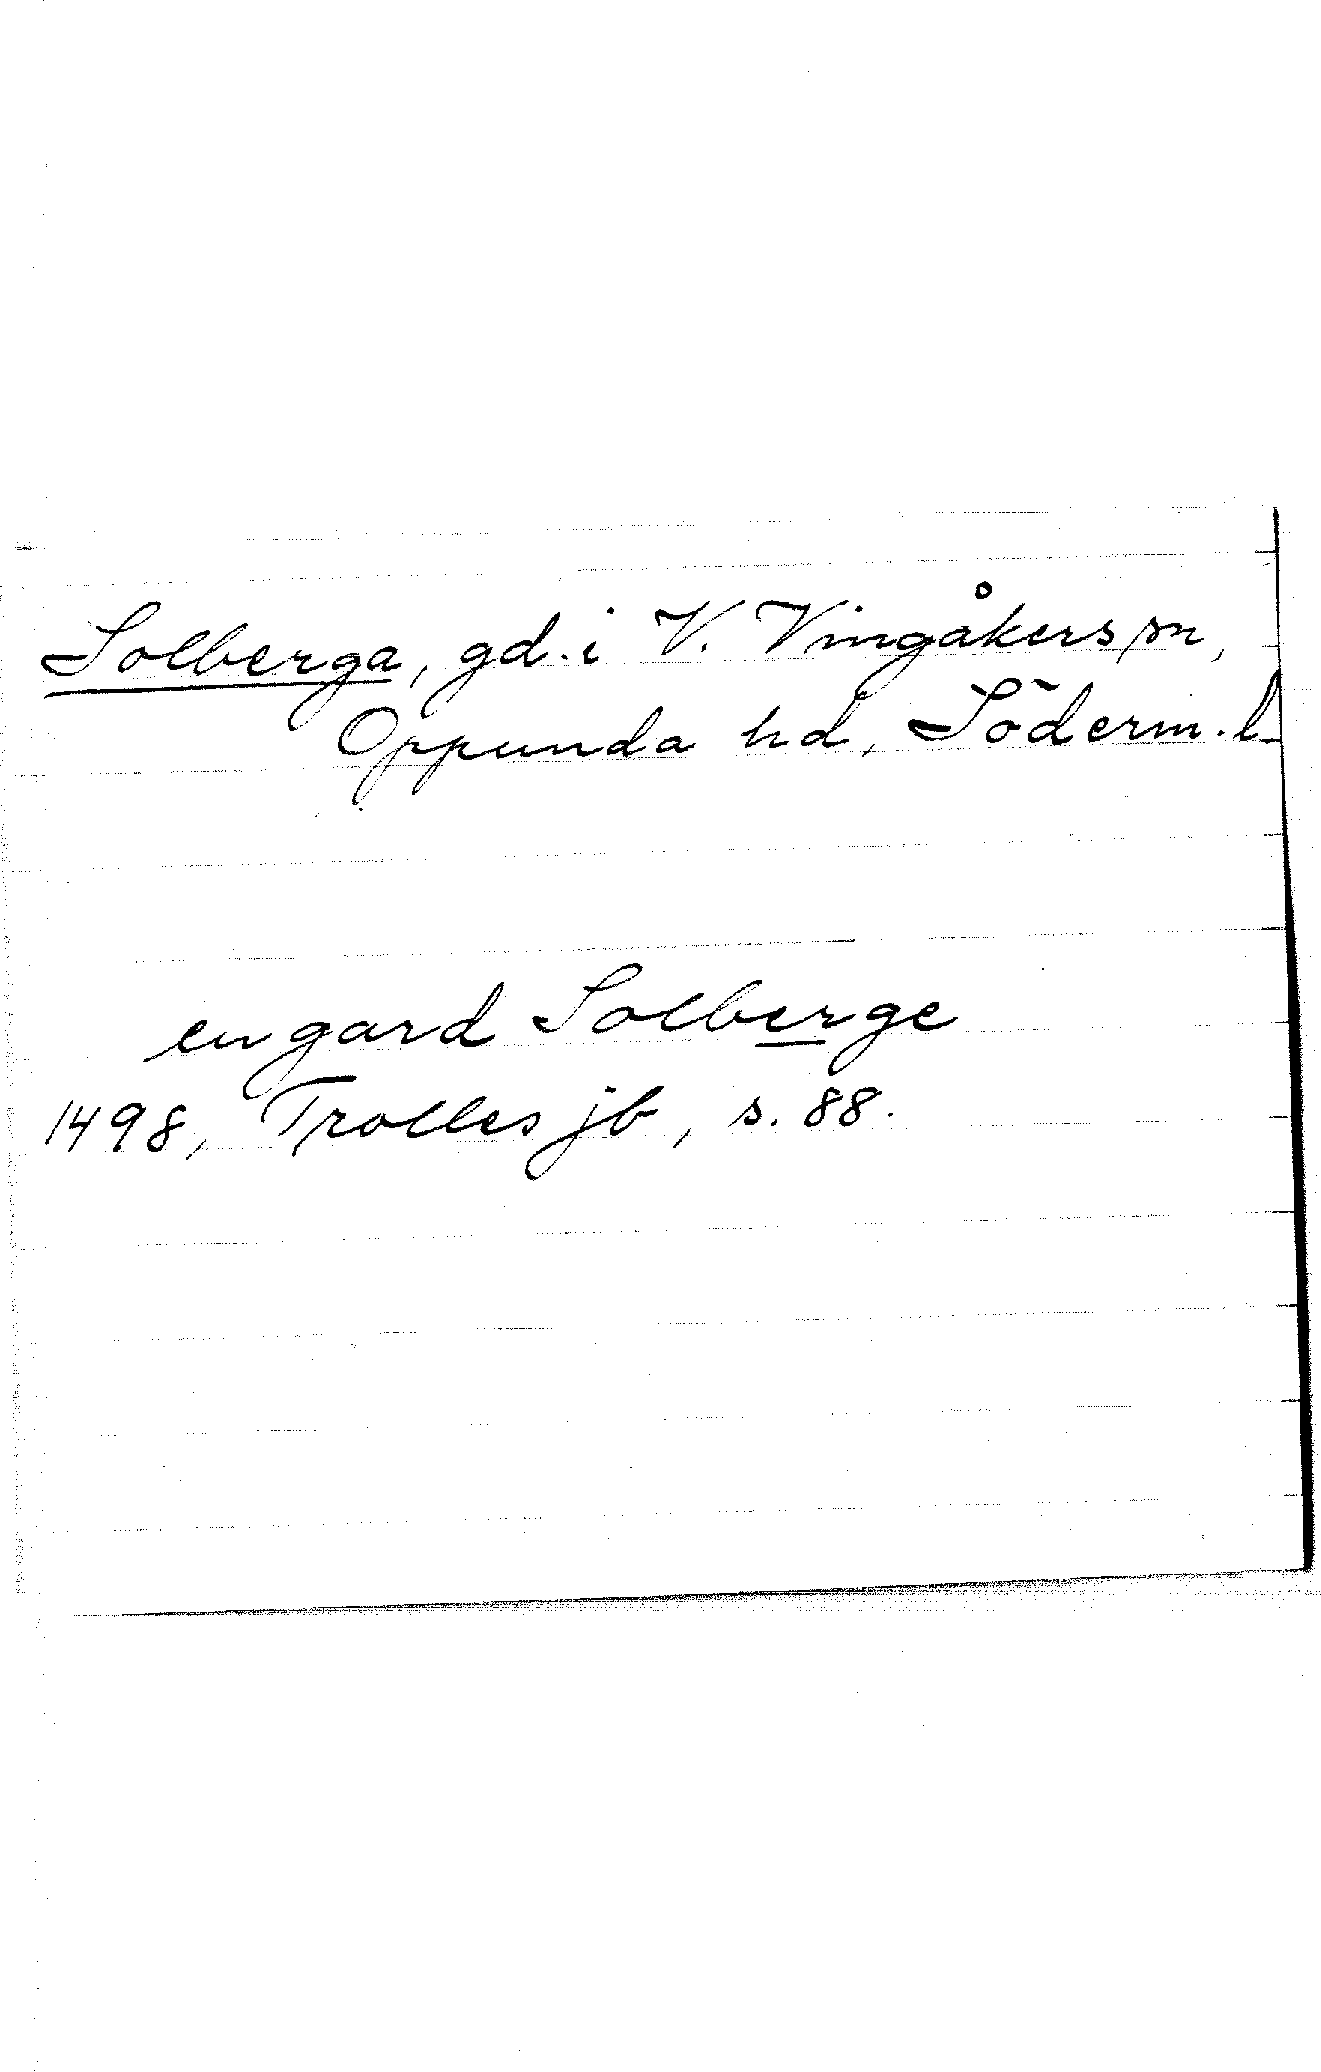 Solberga, gd. i V. Vingåkers sn,
Oppunda hd, Söderm. l
en gard Solberge
1498, Trolles jb, s. 88.